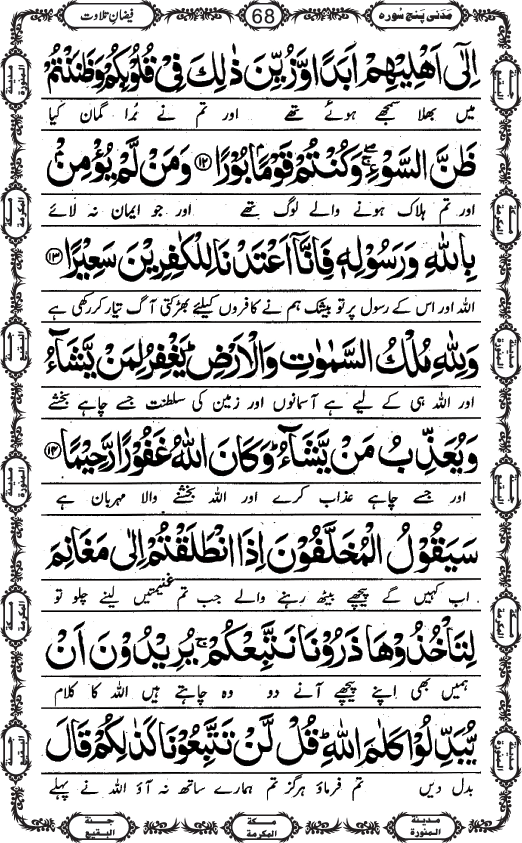 مَدَنی پنج سُورہ
68
فیضانِ تلاوت
اِلٰۤی اَهْلِیْهِمْ اَبَدًا وَّ زُیِّنَ ذٰلِكَ فِیْ قُلُوْبِكُمْ وَ ظَنَنْتُمْ
میں بھلا سمجھے ہوئے تھے اور تم نے بُرا گمان کیا
ظَنَّ السَّوْءِ ۖۚ وَ كُنْتُمْ قَوْمًۢا بُوْرًا ﴿۱۲﴾ وَ مَنْ لَّمْ یُؤْمِنْۢ
اور تم ہلاک ہونے والے لوگ تھے اور جو ایمان نہ لائے
بِاللّٰهِ وَ رَسُوْلِهٖ فَاِنَّاۤ اَعْتَدْنَا لِلْكٰفِرِیْنَ سَعِیْرًا ﴿۱۳﴾
اللہ اور اس کے رسول پر تو بیشک ہم نے کافروں کیلئے بھڑکتی آگ تیار کر رکھی ہے
وَ لِلّٰهِ مُلْكُ السَّمٰوٰتِ وَ الْاَرْضِ ؕ یَغْفِرُ لِمَنْ یَّشَآءُ
اور اللہ ہی کے لیے ہے آسمانوں اور زمین کی سلطنت جسے چاہے بخشے
وَ یُعَذِّبُ مَنْ یَّشَآءُ ؕ وَ كَانَ اللّٰهُ غَفُوْرًا رَّحِیْمًا ﴿۱۴﴾
اور جسے چاہے عذاب کرے اور اللہ بخشنے والا مہربان ہے
سَیَقُوْلُ الْمُخَلَّفُوْنَ اِذَا انْطَلَقْتُمْ اِلٰی مَغَانِمَ
اب کہیں گے پیچھے بیٹھ رہنے والے جب تم غنیمتیں لینے چلو تو
لِتَاْخُذُوْهَا ذَرُوْنَا نَتَّبِعْكُمْ ۚ یُرِیْدُوْنَ اَنْ
ہمیں بھی اپنے پیچھے آنے دو وہ چاہتے ہیں اللہ کا کلام
یُّبَدِّلُوْا كَلٰمَ اللّٰهِ ؕ قُلْ لَّنْ تَتَّبِعُوْنَا كَذٰلِكُمْ قَالَ
بدل دیں تم فرماؤ ہرگز تم ہمارے ساتھ نہ آؤ اللہ نے پہلے
مدینۃ المنورۃ
مکۃ المکرمۃ
جنۃ البقیع